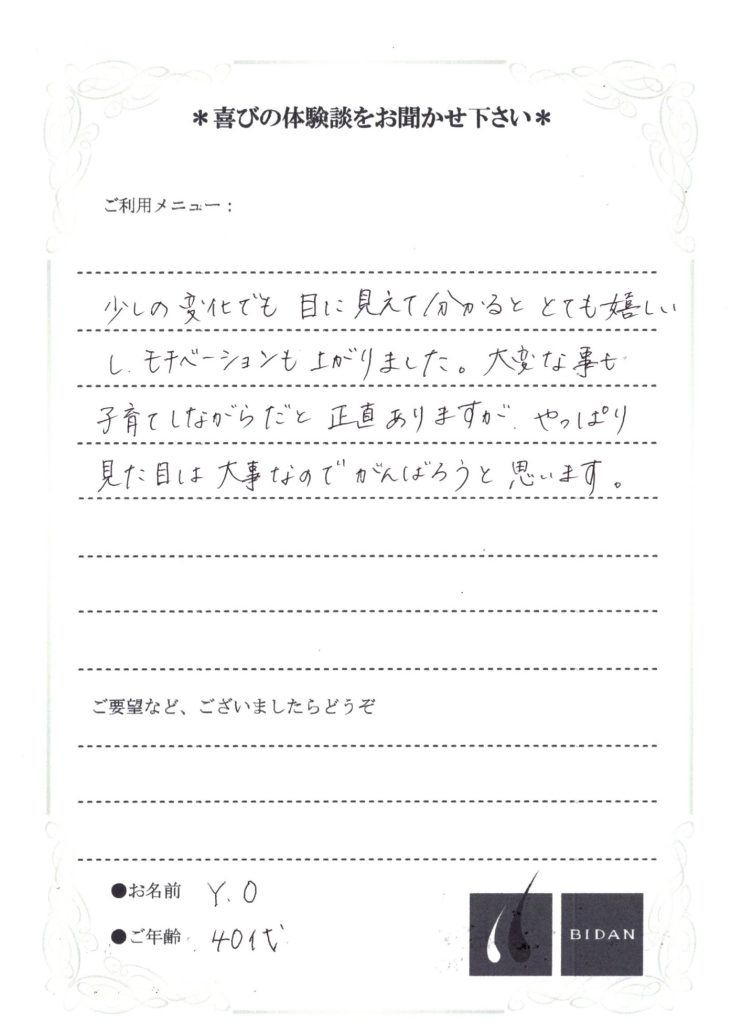 ＊喜びの体験談をお聞かせ下さい＊
ご利用メニュー：
少しの変化でも 目に見えて分かると とても嬉しい
し、モチベーションも上がりました。大変な事も
子育てしながらだと 正直ありますが、やっぱり
見た目は大事なのでがんばろうと思います。
ご要望など、ございましたらどうぞ
●お名前 Y.O
●ご年齢 40代
BIDAN